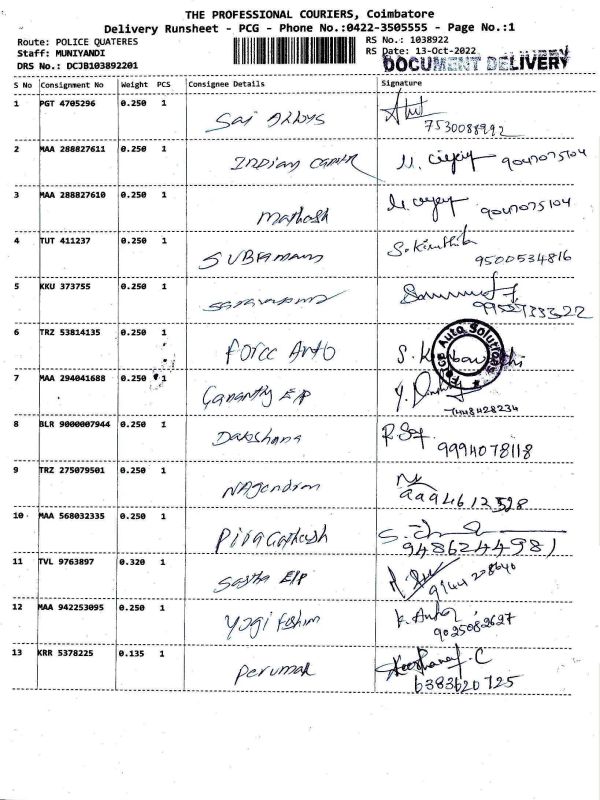 THE PROFESSIONAL COURIERS, Coimbatore
Delivery Runsheet - PCG - Phone No.:0422-3505555 - Page No.:1
Route: POLICE QUATERES
RS No.: 1038922
Staff: MUNIYANDI
RS Date: 13-Oct-2022
DRS No.: DCJB103892201
DOCUMENT DELIVERY
S No Consignment No Weight PCS Consignee Details Signature
1 PGT 4705296 0.250 1 Sai Alloys
7530088992
2 MAA 288827611 0.250 1 Indian 9047075104
3 MAA 288827610 0.250 1 Mathesh 9047075104
4 TUT 411237 0.250 1 SUBAmani S. Kiruthika
9500534816
5 KKU 373755 0.250 1
6 TRZ 53814135 0.250 1 Force Auto S.
Force Auto Solutions
7 MAA 294041688 0.250 1 E/P
7448428234
8 BLR 9000007944 0.250 1 Dakshana
9994078118
9 TRZ 275079501 0.250 1 NAgendran
10 MAA 568032335 0.250 1
9486244981
11 TVL 9763897 0.320 1 Sastha E/P
12 MAA 942253095 0.250 1 Yogi
9025082627
13 KRR 5378225 0.135 1 Perumal
6383620725